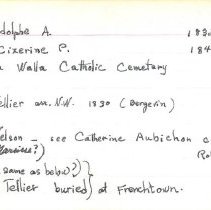 dolphe A. 183
Cizerine P. 184
Walla Catholic Cemetary
ellier arr. N.W. 1830 (Bergevin)
elson - see Catherine Aubichon c
Narcisse?)
same as below?)}
Tellier buried) at Frenchtown.